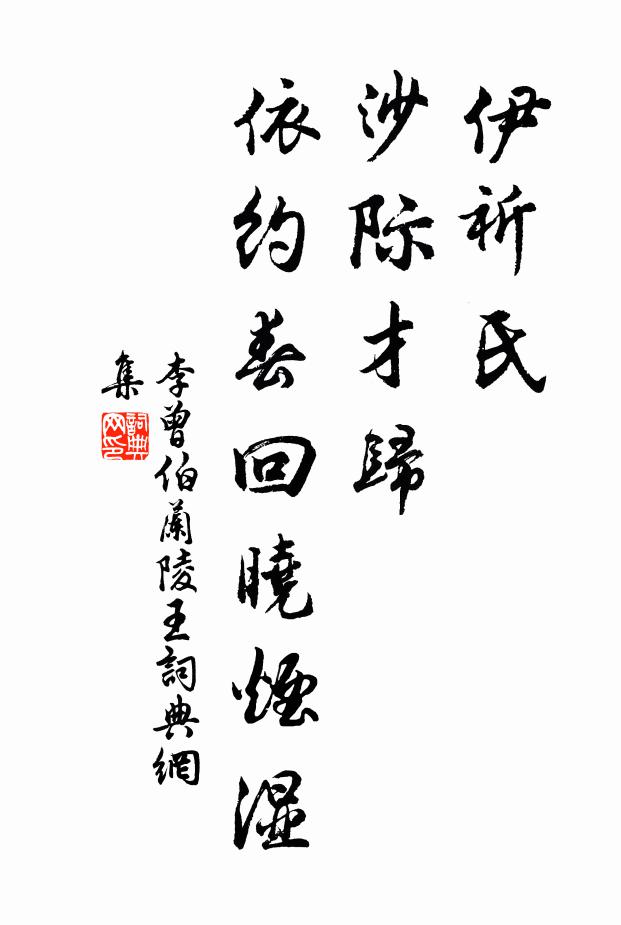 伊祈氏
沙际才歸
依约春回曉煙湿
李曾伯蘭陵王詞典網
集
詞典
网印